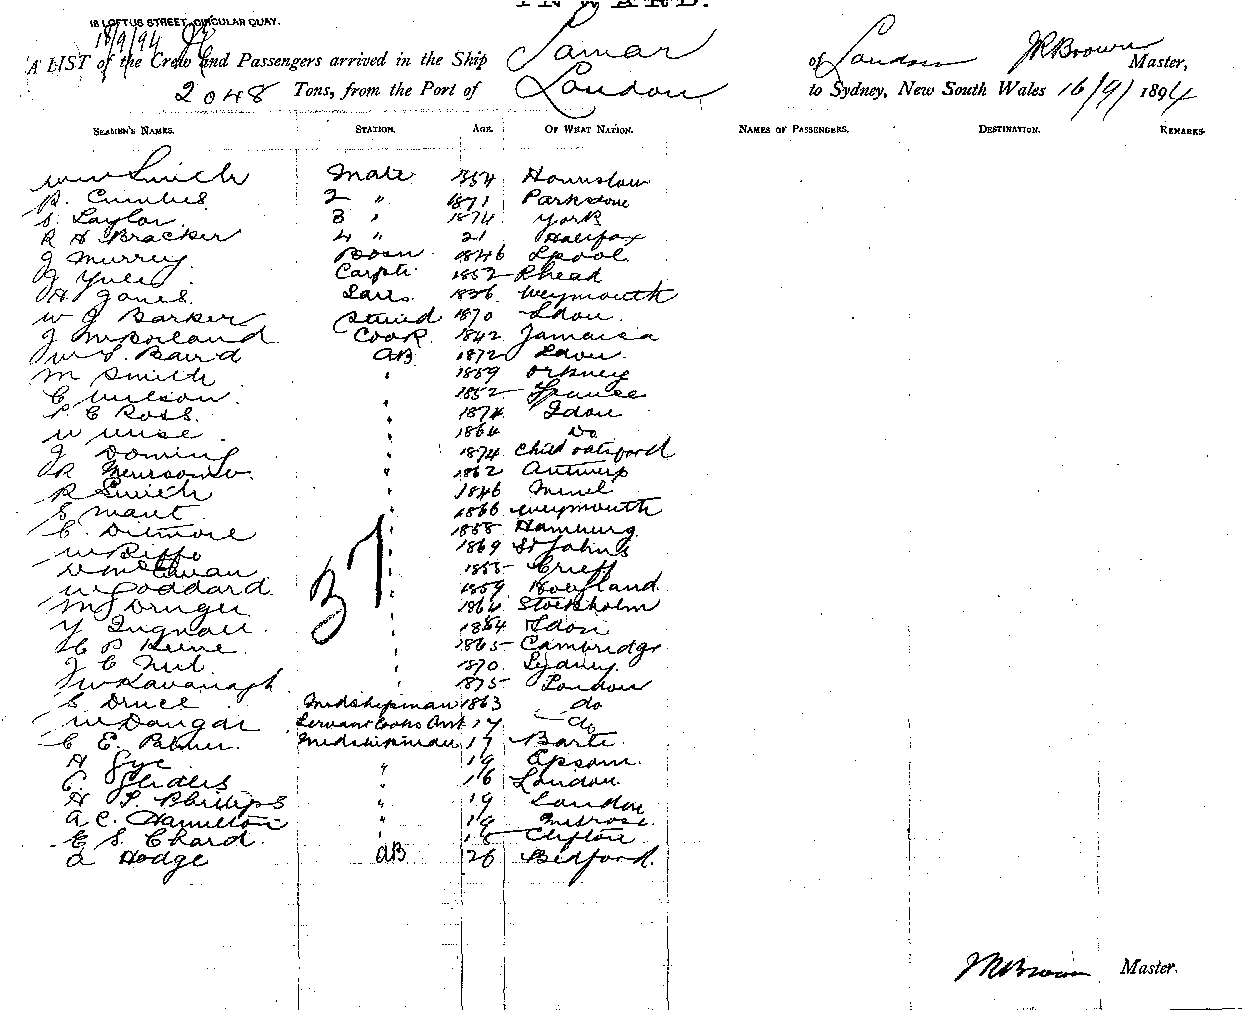 INWARD.
18 LOFTUS STREET, CIRCULAR QUAY.
18/9/94
A LIST of the Crew and Passengers arrived in the Ship Samar of London JR Brown Master,
2048 Tons, from the Port of London to Sydney, New South Wales 16/9/1894
SEAMEN'S NAMES. STATION. AGE. OF WHAT NATION. NAMES OF PASSENGERS. DESTINATION. REMARKS.
Wm Smith Mate 1854 Hounslow
2 " 1871 Parkstone
S. Taylor 3 " 1874 York
R H Bracker 4 " 21 Halifax
J Murrey Bosn 1846 Lpool
J Yule Carptr 1852 Rhead
H Jones Sails 1836 Weymouth
W J Barker Stewd 1870 Ldon
J McBorland Cook 1842 Jamaica
Baird AB 1872 Ldon
M Smith " 1859 Orkney
C Wilson " 1852 France
P. C Ross " 1874 Ldon
W Wise " 1864 Do
J Doming " 1874 Child
R " 1862 Antwerp
R Smith " 1846
S Mant " 1866 Weymouth
C. Ditmore " 1858 Hamburg
W Rippo " 1869 St Johns
37
D McEwan " 1858 Crieff
W Goddard " 1859
M J Druger " 1864 Stockholm
" 1884 Ldon
" 1865 Cambridge
J C " 1870 Sydney
J W Kavanagh " 1875 London
S Druce Midshipman 1863 do
W Dangar Servant Cooks Asst 17 do
C E. Palmer Midshipman 17
H Gye " 19 Epsom
C. " 16 London
H P. Phillips " 19 London
A C. Hamilton " 19 Melrose
E S. Chard " Clifton
A Hodge AB 26 Bedford
JR Brown Master.